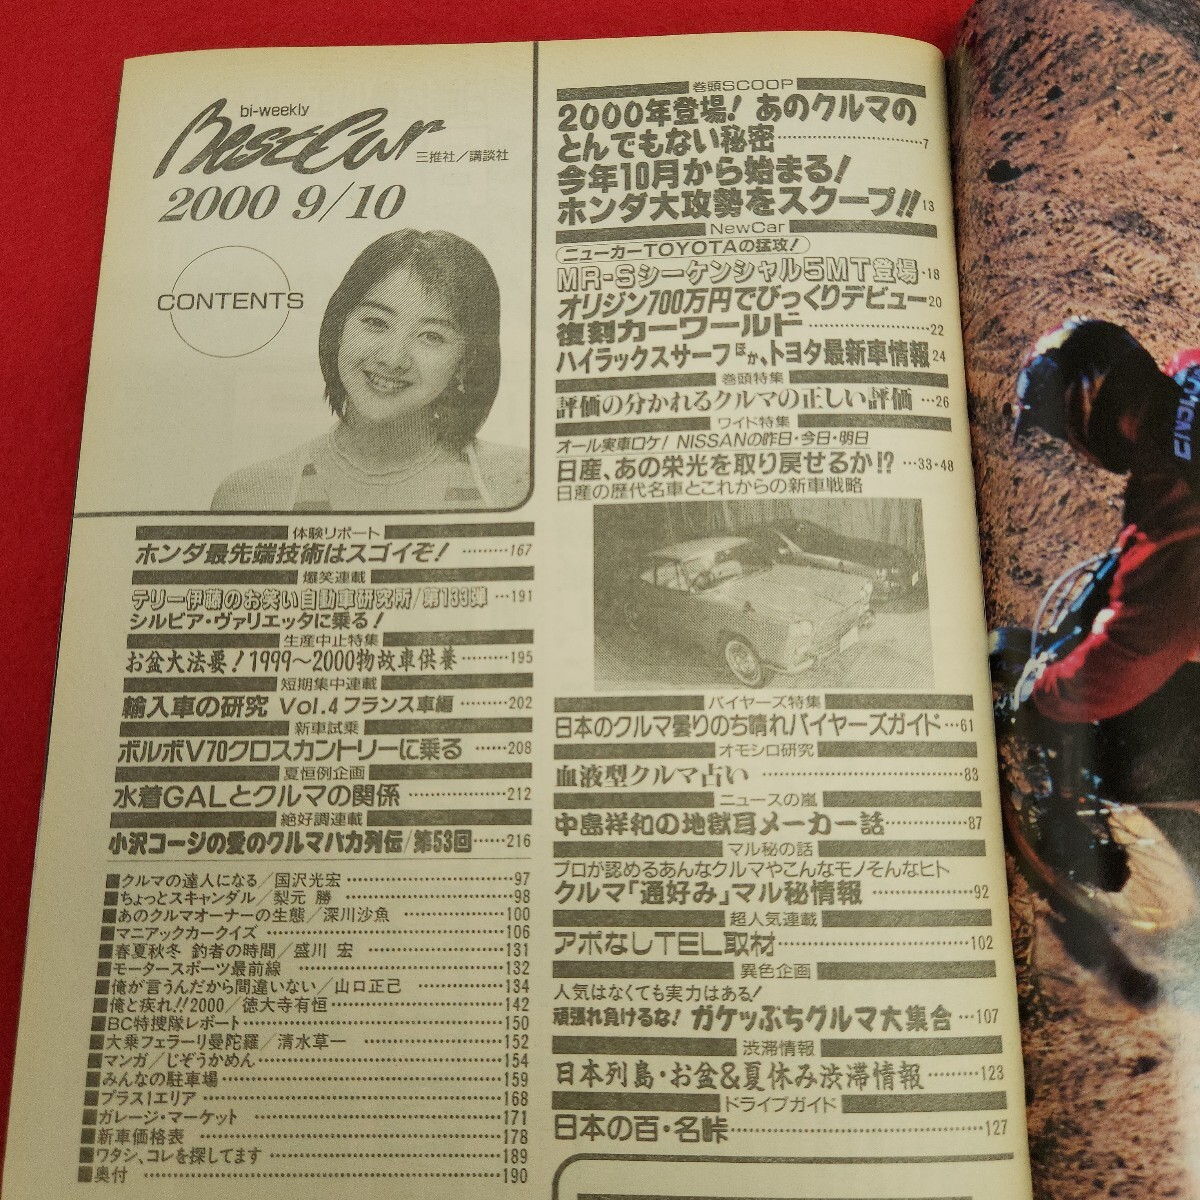 bi-weekly
BestCar
三推社/講談社
2000 9/10
CONTENTS
体験リポート
ホンダ最先端技術はスゴイぞ！ ………167
爆笑連載
テリー伊藤のお笑い自動車研究所/第133弾 …191
シルビア・ヴァリエッタに乗る！
生産中止特集
お盆大法要！1999〜2000物故車供養………195
短期集中連載
輸入車の研究 Vol.4フランス車編………202
新車試乗
ボルボV70クロスカントリーに乗る ……208
夏恒例企画
水着GALとクルマの関係 ……………212
絶好調連載
小沢コージの愛のクルマバカ列伝/第53回……216
■クルマの達人になる/国沢光宏……………………97
■ちょっとスキャンダル/梨元 勝……………………98
■あのクルマオーナーの生態/深川沙魚……………100
■マニアックカークイズ……………………………106
■春夏秋冬 釣者の時間/盛川 宏 …………………131
■モータースポーツ最前線 …………………………132
■俺が言うんだから間違いない/山口正己 …………134
■俺と疾れ!!2000/徳大寺有恒………………………142
■BC特捜隊レポート…………………………………150
■大乗フェラーリ曼陀羅/清水草一 …………………152
■マンガ/じぞうかめん………………………………154
■みんなの駐車場……………………………………159
■プラス1エリア ……………………………………168
■ガレージ・マーケット ……………………………171
■新車価格表 …………………………………………178
■ワタシ、コレを探してます …………………………189
■奥付 …………………………………………………190
巻頭SCOOP
2000年登場！あのクルマの
とんでもない秘密……………………7
今年10月から始まる！
ホンダ大攻勢をスクープ!! 13
NewCar
ニューカーTOYOTAの猛攻！
MR-Sシーケンシャル5MT登場・18
オリジン700万円でびっくりデビュー20
復刻カーワールド ………………22
ハイラックスサーフほか、トヨタ最新車情報 24
巻頭特集
評価の分かれるクルマの正しい評価 …26
ワイド特集
オール実車ロケ！NISSANの昨日・今日・明日
日産、あの栄光を取り戻せるか!? …33・48
日産の歴代名車とこれからの新車戦略
バイヤーズ特集
日本のクルマ曇りのち晴れバイヤーズガイド…61
オモシロ研究
血液型クルマ占い ……………………83
ニュースの嵐
中島祥和の地獄耳メーカー話…………87
マル秘の話
プロが認めるあんなクルマやこんなモノそんなヒト
クルマ「通好み」マル秘情報 …………92
超人気連載
アポなしTEL取材……………………102
異色企画
人気はなくても実力はある！
頑張れ負けるな！ ガケッぷちクルマ大集合 …107
渋滞情報
日本列島・お盆&夏休み渋滞情報………123
ドライブガイド
日本の百・名峠…………………………127